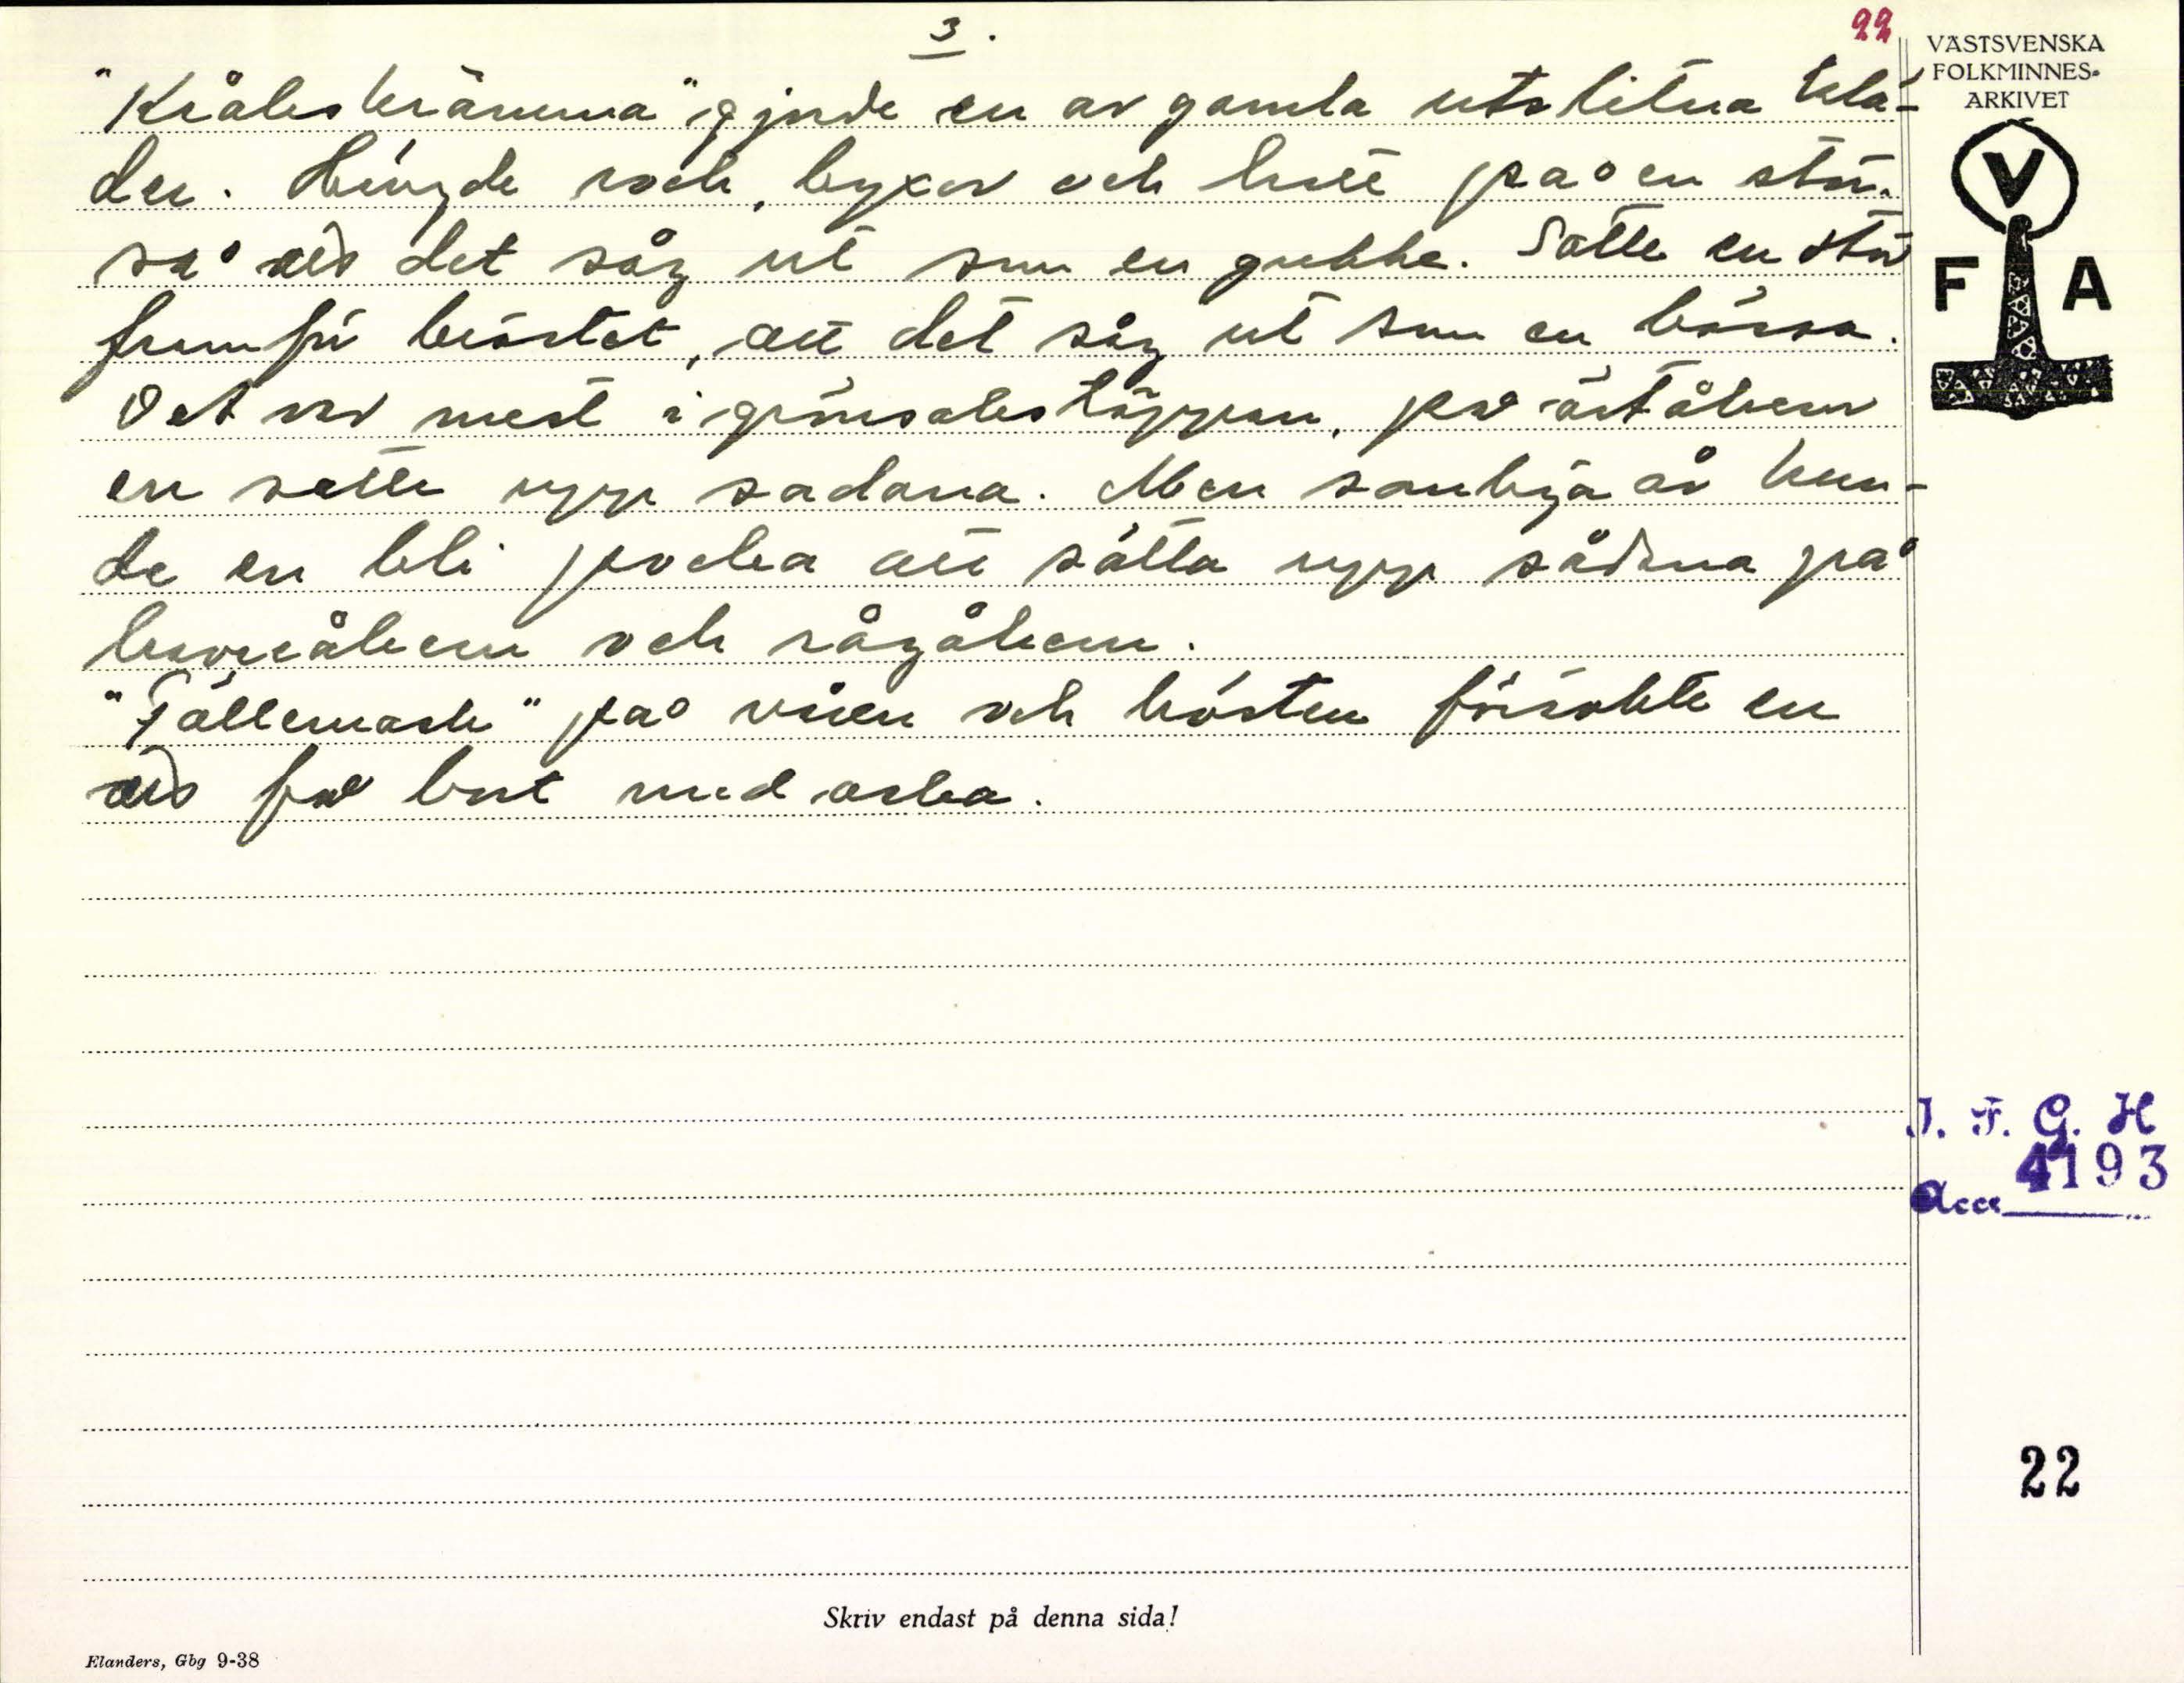 3.
22
VÄSTSVENSKA
FOLKMINNES-
ARKIVET
V
F A
"Kråkeskrämma" gjorde en av gamla utslitna klä-
der. Hängde rock, byxor och hatt på en stör
så att det såg ut som en gubbe. Satte en stör
framför bröstet, att det såg ut som en bössa.
Det var mest i grönsakstäppan, på ärtåkern
en satte upp sadana. Men somliga år kun-
de en bli pocka att sätta upp sådana på
kornåkern och rågåkern.
"Fällemask" på våren och hösten försökte en
att få bort med aska.
I. F. G. H
4193
Acc
22
Skriv endast på denna sida!
Elanders, Gbg 9-38